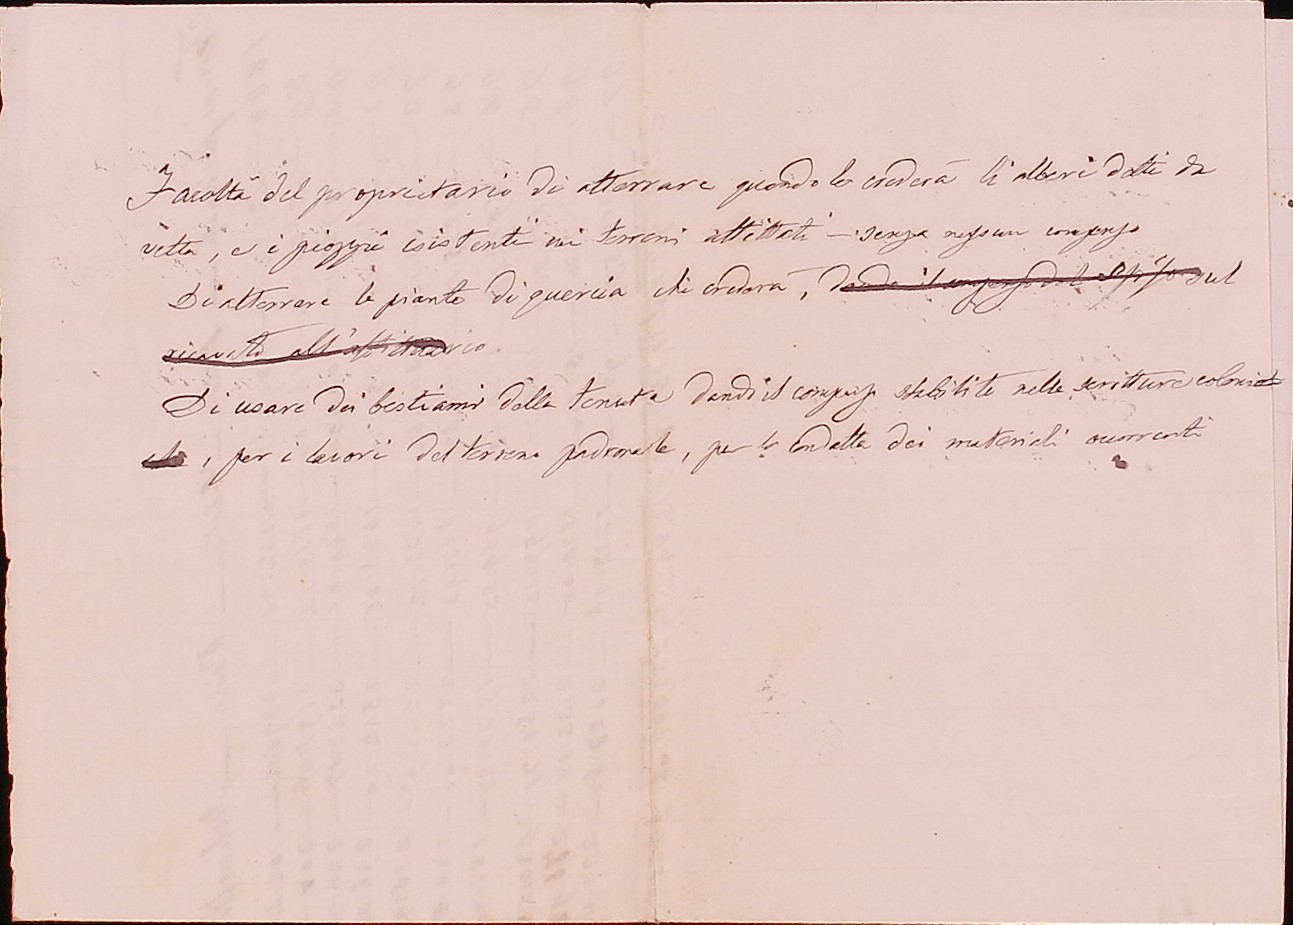 Facoltà del proprietario di atterrare quando lo crederà li alberi detti da
vetta, e i pioppi esistenti nei terreni affittati – senza nessun compenso
Di atterrare le piante di quercia che crederà, dando il compenso del sul
ricavato all'affittuario
Di usare dei bestiami della tenuta dando il compenso stabilito nelle scritture
, per i lavori del terreno padronale, per la condotta dei materiali occorrenti